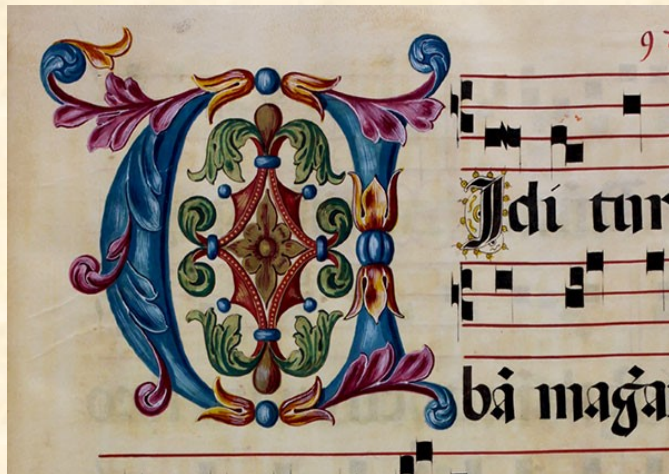 9
VIdi tur
bã mag̃a